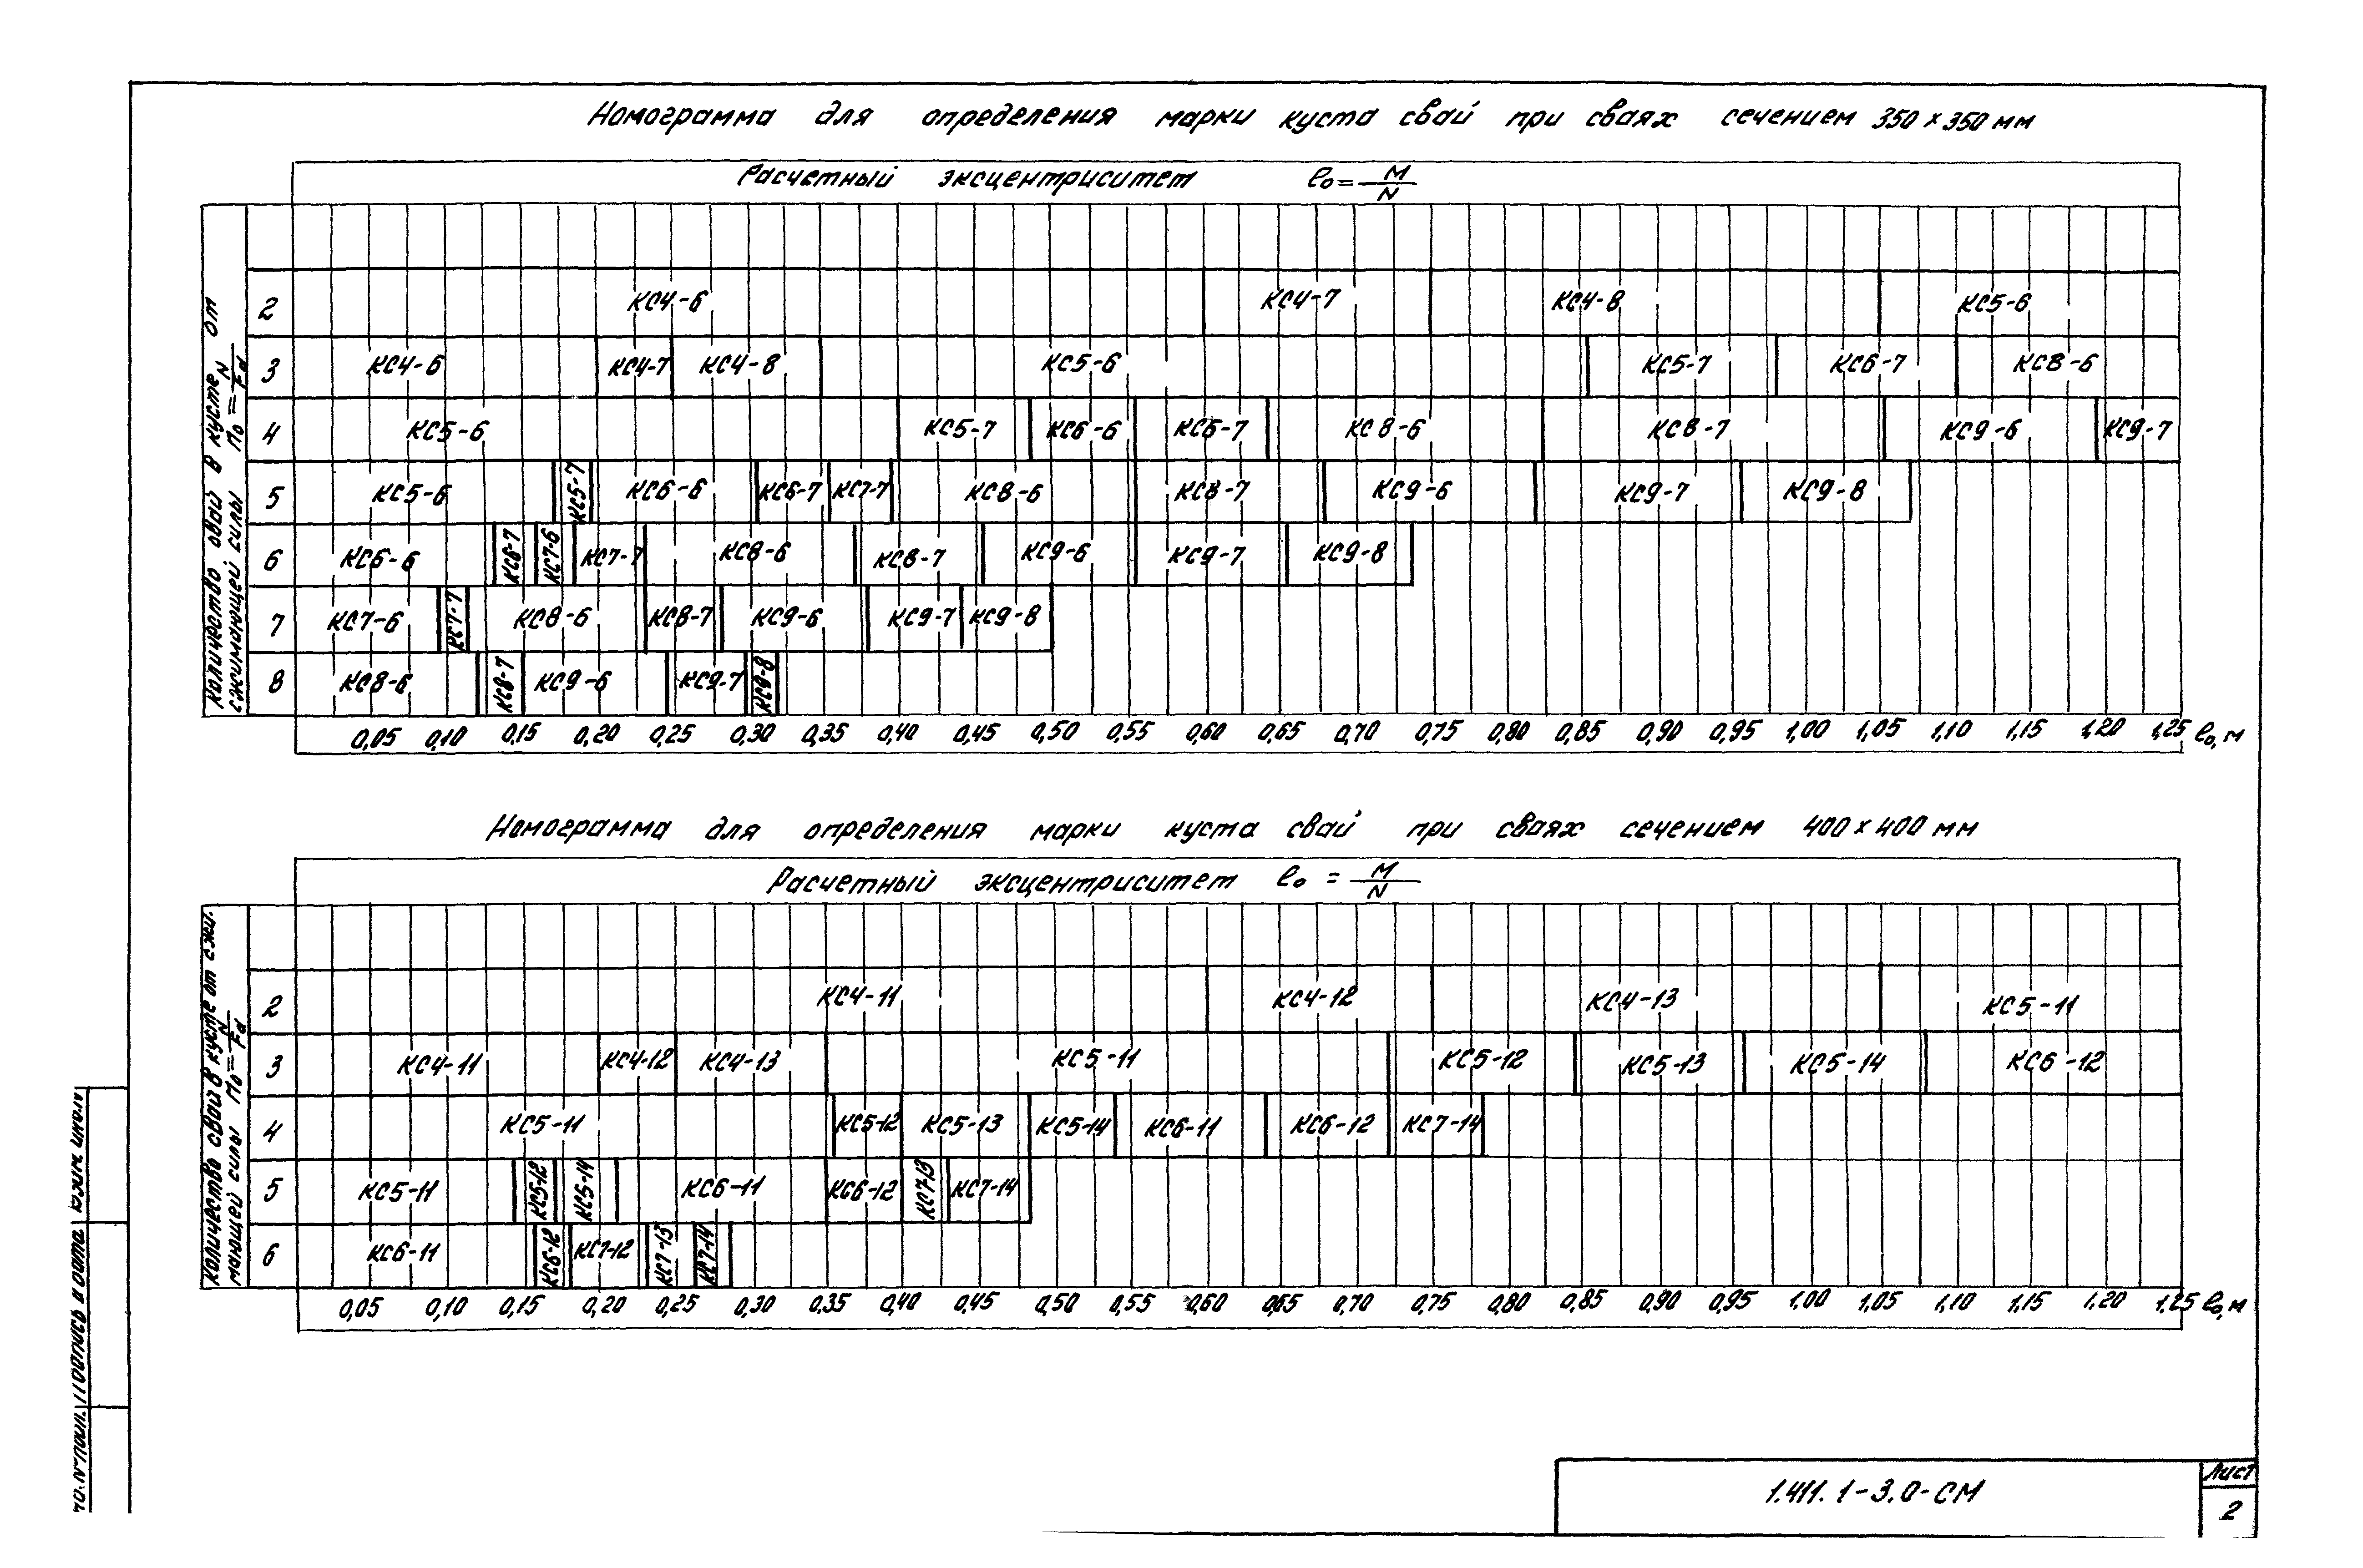 Номограмма для определения марки куста свай при сваях сечением 350×350 мм
Расчетный эксцентриситет e₀ = M/N
Количество свай в кусте от
сжимающей силы n₀ = N/Fd
2 КС4-6 КС4-7 КС4-8 КС5-6
3 КС4-6 КС4-7 КС4-8 КС5-6 КС5-7 КС6-7 КС8-6
4 КС5-6 КС5-7 КС6-6 КС6-7 КС8-6 КС8-7 КС9-6 КС9-7
5 КС5-6 КС5-7 КС6-6 КС6-7 КС7-7 КС8-6 КС8-7 КС9-6 КС9-7 КС9-8
6 КС6-6 КС6-7 КС7-6 КС7-7 КС8-6 КС8-7 КС9-6 КС9-7 КС9-8
7 КС7-6 КС7-7 КС8-6 КС8-7 КС9-6 КС9-7 КС9-8
8 КС8-6 КС8-7 КС9-6 КС9-7 КС9-8
0,05 0,10 0,15 0,20 0,25 0,30 0,35 0,40 0,45 0,50 0,55 0,60 0,65 0,70 0,75 0,80 0,85 0,90 0,95 1,00 1,05 1,10 1,15 1,20 1,25 e₀, м
Номограмма для определения марки куста свай при сваях сечением 400×400 мм
Расчетный эксцентриситет e₀ = M/N
Количество свай в кусте от сжи-
мающей силы n₀ = N/Fd
2 КС4-11 КС4-12 КС4-13 КС5-11
3 КС4-11 КС4-12 КС4-13 КС5-11 КС5-12 КС5-13 КС5-14 КС6-12
4 КС5-11 КС5-12 КС5-13 КС5-14 КС6-11 КС6-12 КС7-14
5 КС5-11 КС5-12 КС5-14 КС6-11 КС6-12 КС7-13 КС7-14
6 КС6-11 КС6-12 КС7-12 КС7-13 КС7-14
0,05 0,10 0,15 0,20 0,25 0,30 0,35 0,40 0,45 0,50 0,55 0,60 0,65 0,70 0,75 0,80 0,85 0,90 0,95 1,00 1,05 1,10 1,15 1,20 1,25 e₀, м
подпись и дата
1.411.1-3.0-СМ
Лист
2